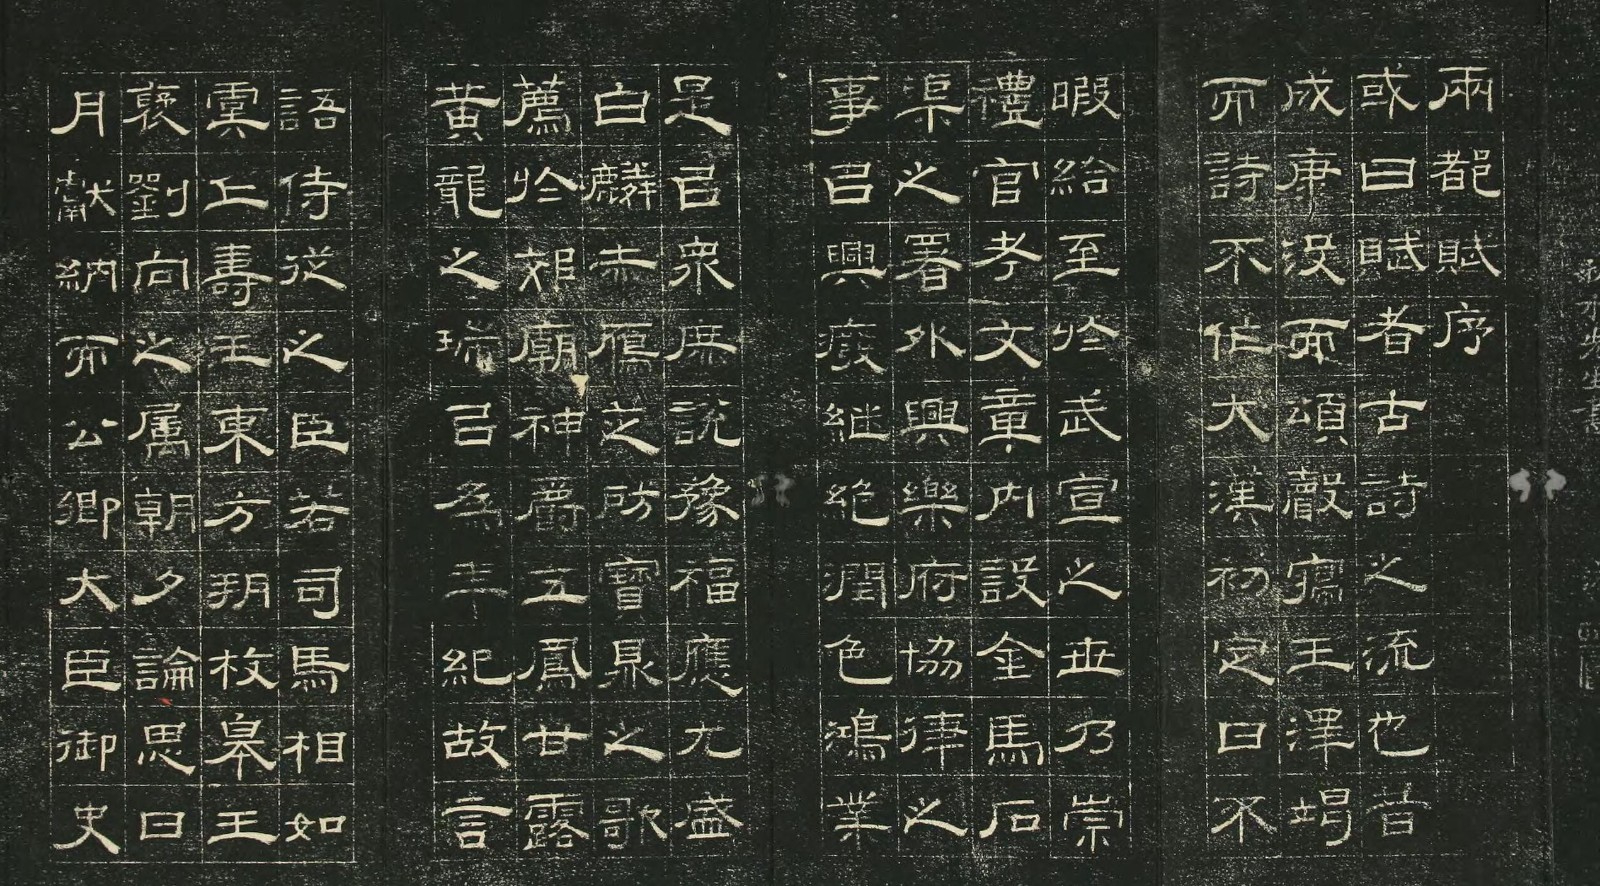 兩都賦序
或曰賦者古詩之流也昔
成康没而頌聲寢王澤竭
而詩不作大漢初定日不
暇給至於武宣之世乃崇
禮官考文章内設金馬石
渠之署外興樂府協律之
事㠯興廢繼絶潤色鴻業
是㠯衆庶說豫福應尤盛
白麟赤鴈芝房寶鼎之歌
薦於郊廟神爵五鳳甘露
黃龍之瑞㠯為年紀故言
語侍從之臣若司馬相如
虞丘壽王東方朔枚皋王
褒劉向之属朝夕論思日
月獻納而公卿大臣御史